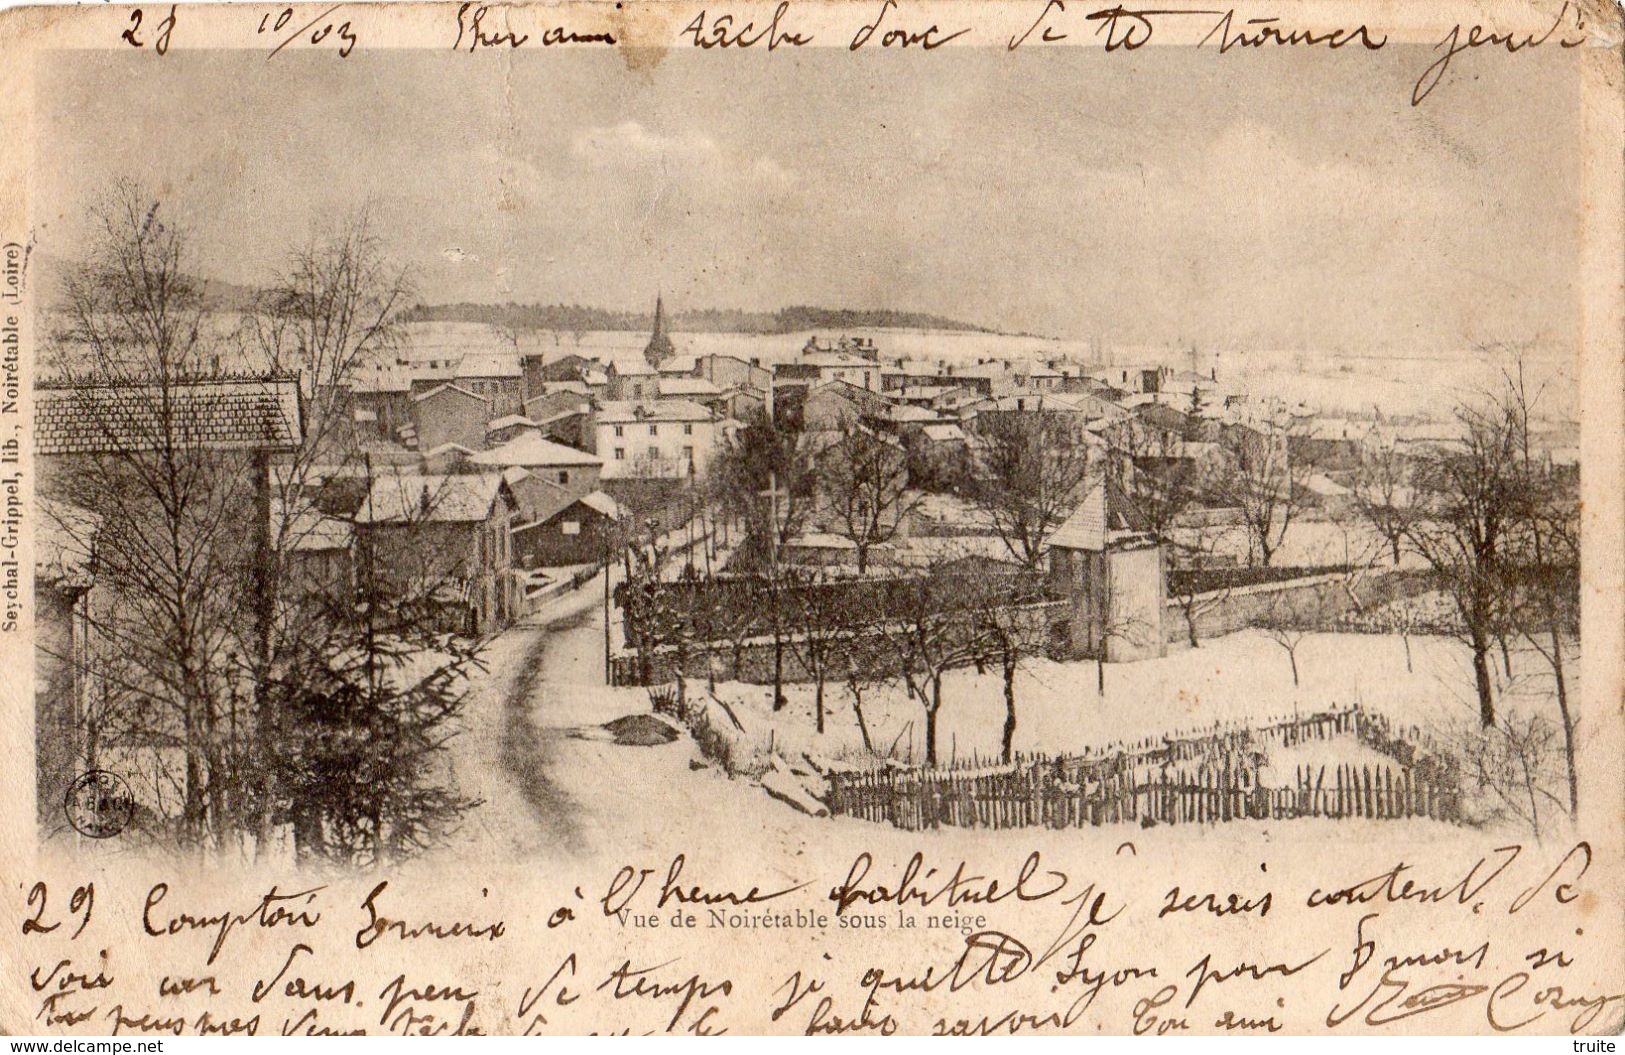 28 10/03 Cher ami tâche donc de te trouver jeudi
Seychal-Grippel, lib., Noirétable (Loire)
29 Comptoir à l'heure habituel je serais content de
Vue de Noirétable sous la neige
voir car dans peu de temps je quitte Lyon pour 8 mois si
tu peus pas venir tâche de me le faire savoir. Ton ami
www.delcampe.net
truite